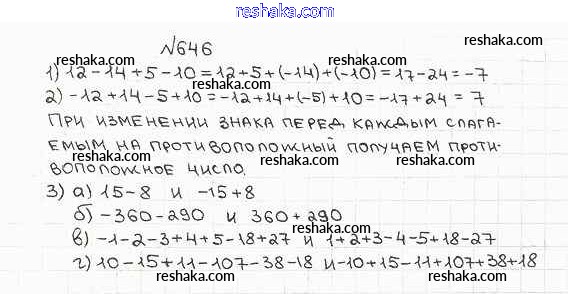 reshaka.com
№646
reshaka.com
reshaka.com
1) 12-14+5-10=12+5+(-14)+(-10)=17-24=-7
2) -12+14-5+10=-12+14+(-5)+10=-17+24=7
reshaka.com
reshaka.com
ПРИ ИЗМЕНЕНИИ ЗНАКА ПЕРЕД КАЖДЫМ СЛАГА-
ЕМЫМ НА ПРОТИВОПОЛОЖНЫЙ ПОЛУЧАЕМ ПРОТИ-
ВОПОЛОЖНОЕ ЧИСЛО.
reshaka.com
reshaka.com
3) а) 15-8 и -15+8
б) -360-290 и 360+290
reshaka.com
reshaka.com
в) -1-2-3+4+5-18+27 и 1+2+3-4-5+18-27
г) 10-15+11-107-38-18 и -10+15-11+107+38+18
reshaka.com
reshaka.com